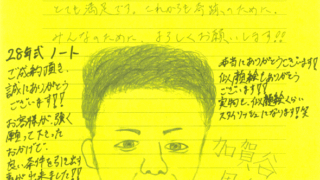 とても満足です。これからも奇跡のために、
みんなのために、よろしくお願いします!!
28年式 ノート
ご成約頂き、
誠にありがとう
ございます!!
お客様が、強く
願って下さった
おかげで、
良い条件を引き出す
事が出来ました!!
本当にありがとうございます!
似顔絵もありがとう
ございます!!
実物も、似顔絵くらい
スタイリッシュになります!!笑
加賀谷